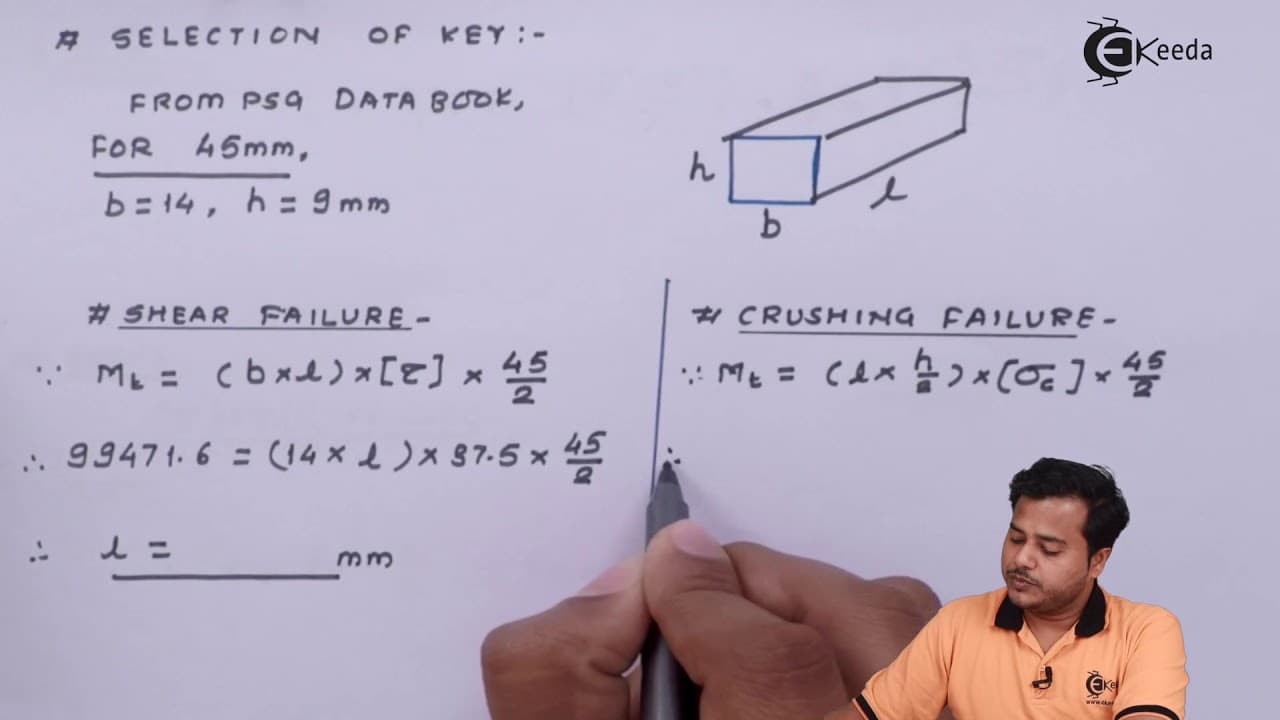 # SELECTION OF KEY:-
FROM PSG DATA BOOK,
FOR 45mm,
b = 14, h = 9 mm
h
b
l
# SHEAR FAILURE -
∵ Mt = (b×l)×[τ] × 45/2
∴ 99471.6 = (14× l)× 37.5 × 45/2
∴ l = mm
# CRUSHING FAILURE -
∵ Mt = (l× h/2)×[σc]× 45/2
∴
EKeeda
EKe